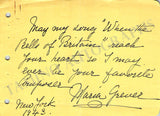 May my song "When the
Bells of Britain" reach
your heart so I may
ever be your favorite
composer
Maria Grever
New York
1943.